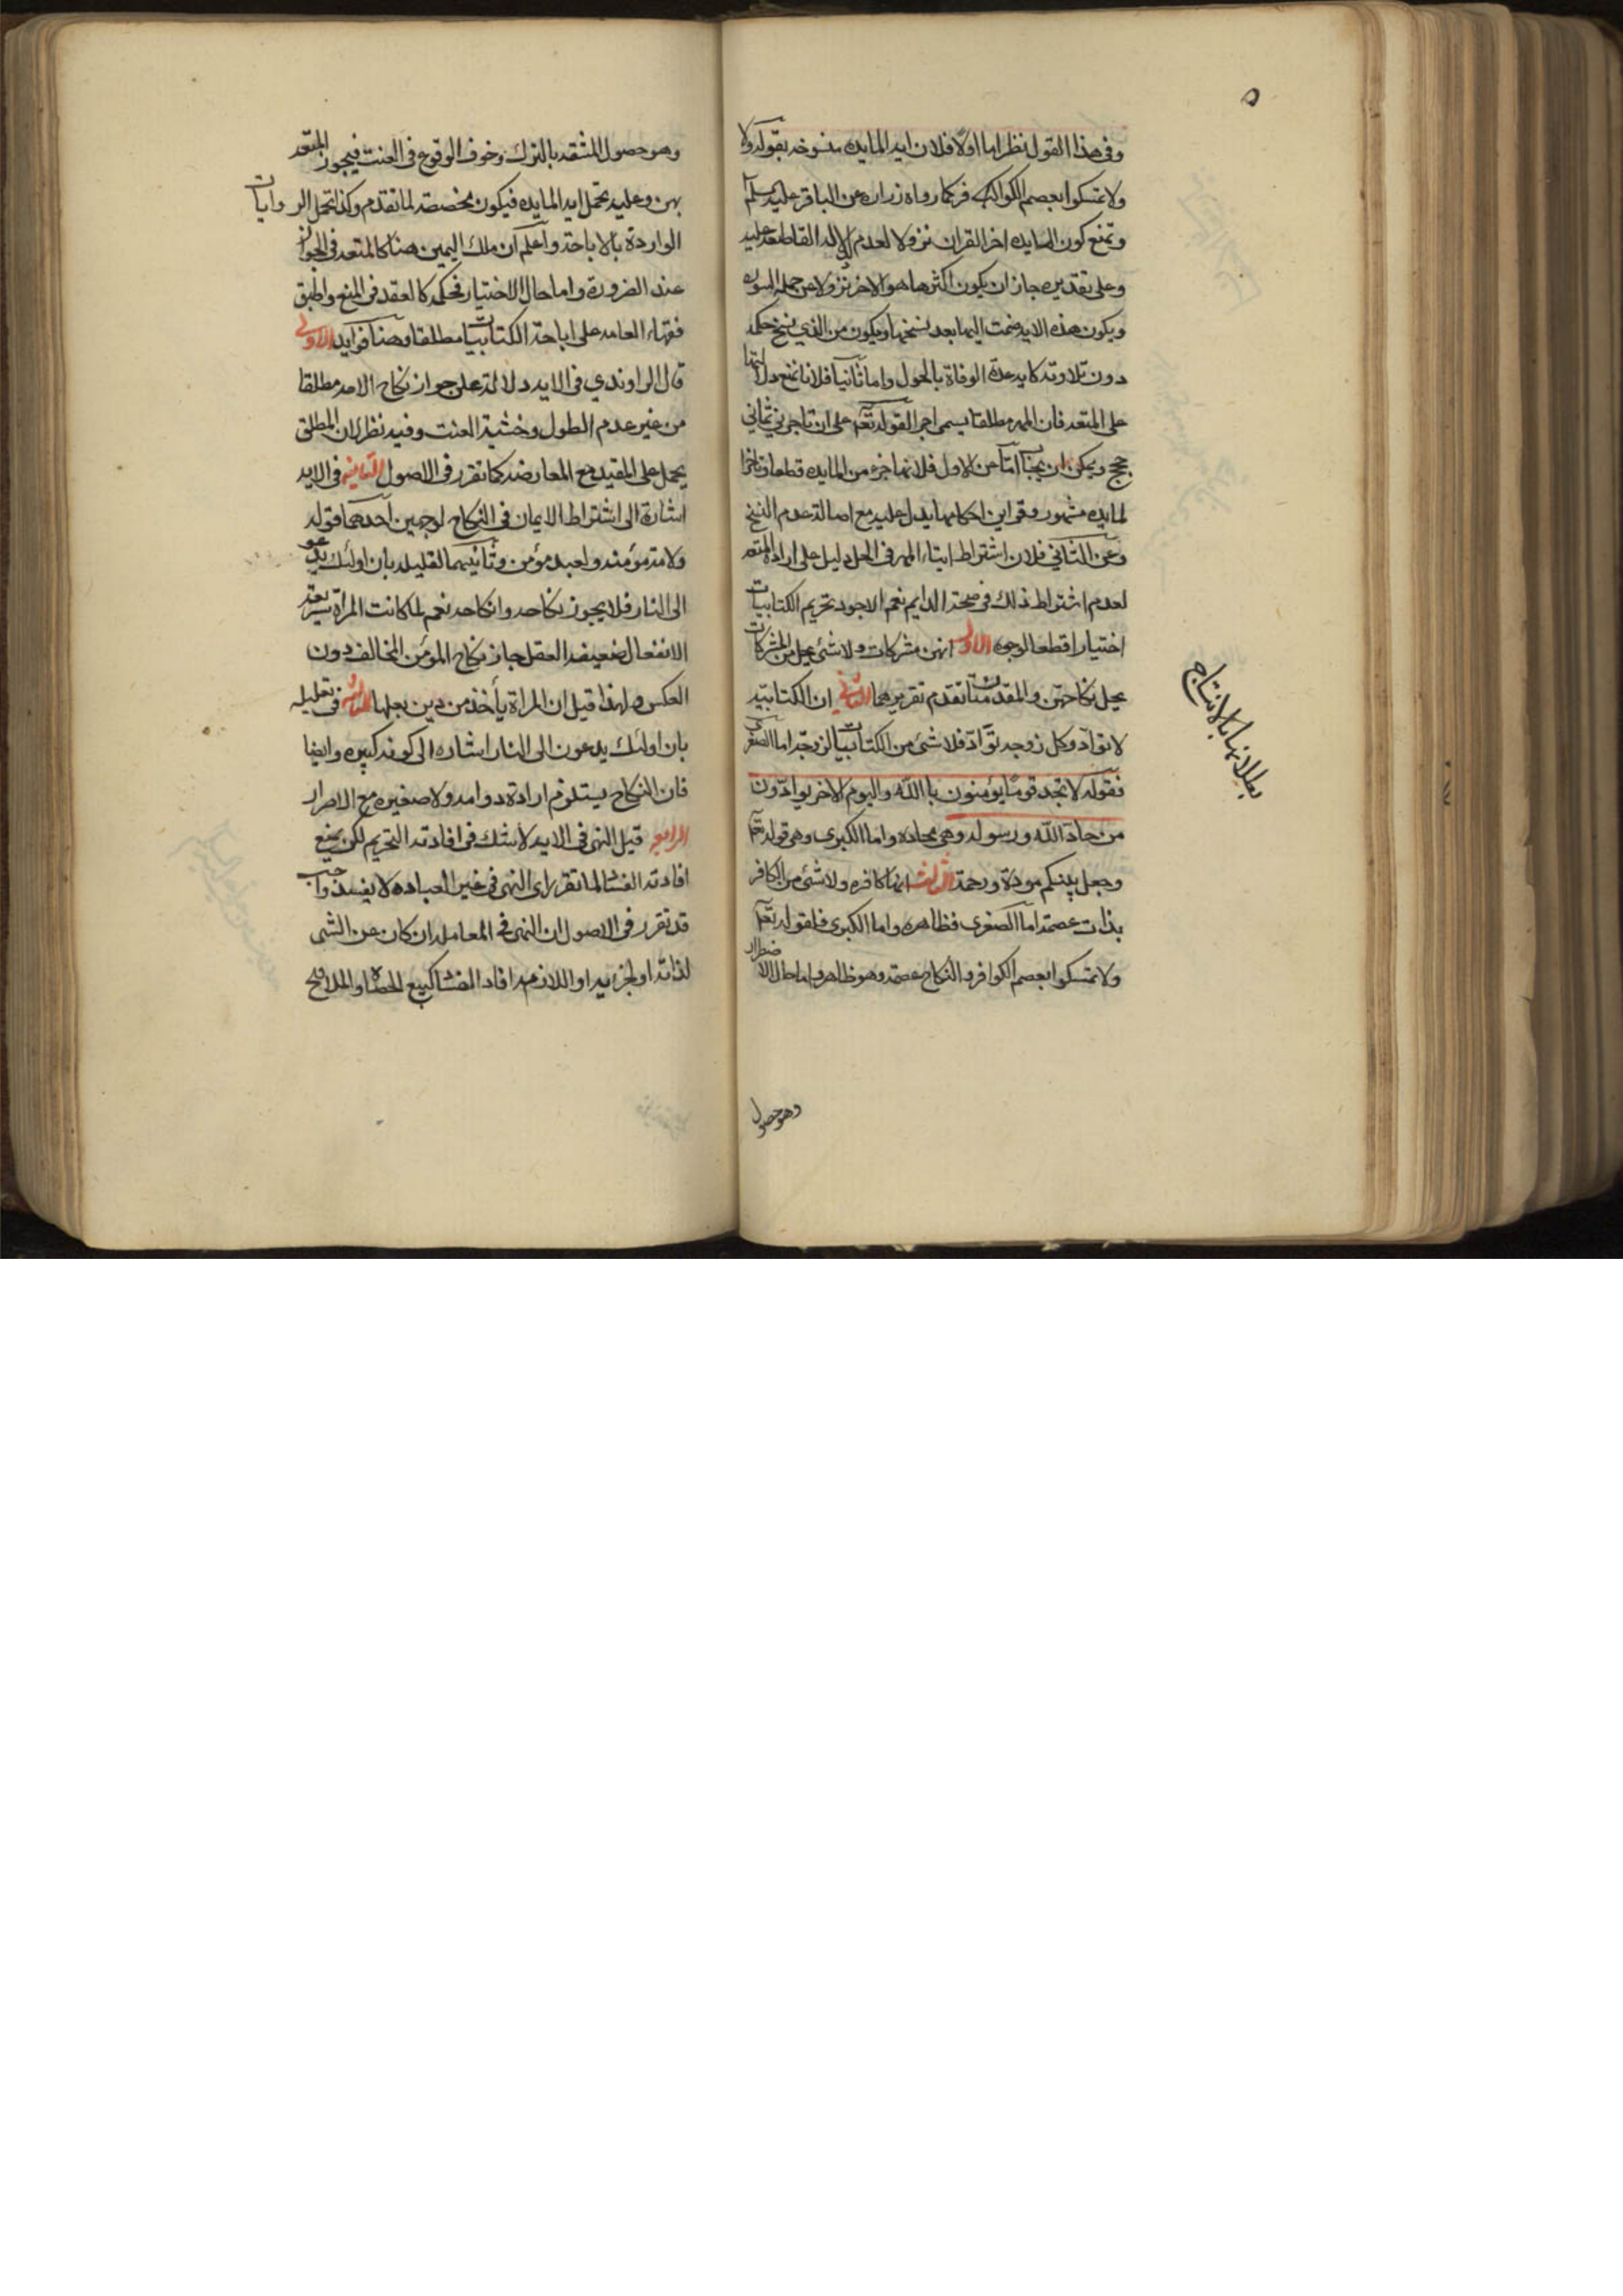 وفى هذا القول نظر اما اولا فلان ايه المايده منسوخه بقوله ولا
ولا تمسكوا بعصم الكوافر كما رواه زراره عن الباقر عليه السلم
وتمنع كون المايده اخر القران نزولا لعدم الادله القاطعه عليه
وعلى تقديره جاز ان يكون اكثرها هو الاخر نزولا عن جملة السوره
ويكون هذه الايه ضمت اليها بعد نسخها ويكون من الذي نسخ حكمه
دون تلاوته كايه عدة الوفاة بالحول واما ثانيا فلانا نمنع دلالتها
على المتعه فان المهر مطلقا يسمى اجرا لقوله تعم على ان تاجرني ثماني
حجج ويمكن ان يجاب اما عن الاول فلانها اخره من المايده قطعا وتاخر
لمايده مشهور وفى اين احكامها يدل عليه مع اصالة عدم النسخ
وعن الثاني فلان اشتراط ايتاء المهر فى الحل دليل على ارادة المتعه
لعدم اشتراط ذلك فى صحة الدايم نعم الاجود تحريم الكتابيات
اختيارا قطعا لوجوه الاول انهن مشركات ولا شئ من المشركات
يحل نكاحهن والمقدمتان تقدم تقريرهما الثاني ان الكتابيه
لا توادّ وكل زوجه توادّ فلا شئ من الكتابيات بزوجه اما الصغرى
فقوله لا تجد قوما يؤمنون باالله واليوم الاخر يوادّون
من حادّ الله ورسوله وهى محاده واما الكبرى وهى قوله تعم
وجعل بينكم مودة ورحمة الثالث انها كافره ولا شئ من الكافر
بذات عصمة اما الصغرى فظاهره واما الكبرى فلقوله تعم
ولا تمسكوا بعصم الكوافر والنكاح عصمة وهو ظاهر واما حال الاضطرار
وهو حصول
وهو حصول المشقه بالترك وخوف الوقوع فى العنت فيجوز المتعه
بهن وعليه تحمل ايه المايده فيكون مخصصة لما تقدم وكذا تحمل الروايات
الواردة بالاباحة واعلم ان ملك اليمين هنا كالمتعه فى الجواز
عند الضرورة واما حال الاختيار فحكمه كالعقد فى المنع واطبق
فقهاء العامه على اباحة الكتابيات مطلقا وهنا فوايد الاولى
قال الراوندي فى الايه دلالة على جواز نكاح الامه مطلقا
من غير عدم الطول وخشية العنت وفيه نظر لان المطلق
يحمل على المقيد مع المعارضه كما تقرر فى الاصول الثانيه فى الايه
اشارة الى اشتراط الايمان فى النكاح لوجهين احدهما قوله
ولامة مؤمنه ولعبد مؤمن وثانيهما لتعليله بان اولئك يدعو
الى النار فلا يجوز نكاحه وانكاحه نعم لما كانت المراة سريعة
الانفعال لضعيفة العقل جاز نكاح المؤمن المخالفه دون
العكس ولهذا قيل ان المراة يأخذ من دين بعلها الثالثه فى تعليله
بان اولئك يدعون الى النار اشاره الى كونه كبيره وايضا
فان النكاح يستلزم ارادة دوامه ولا صغيره مع الاصرار
الرابع قيل النهى فى الايه لا شك فى افادته التحريم لكن يمنع
افادته الفساد لما تقرر ان النهى فى غير العباده لا يفسد واجيب
قد تقرر فى الاصول ان النهى فى المعامله ان كان عن الشى
لذاته او لجزئيه او اللازمه افاد الفساد كبيع الحصاه والملاقيح